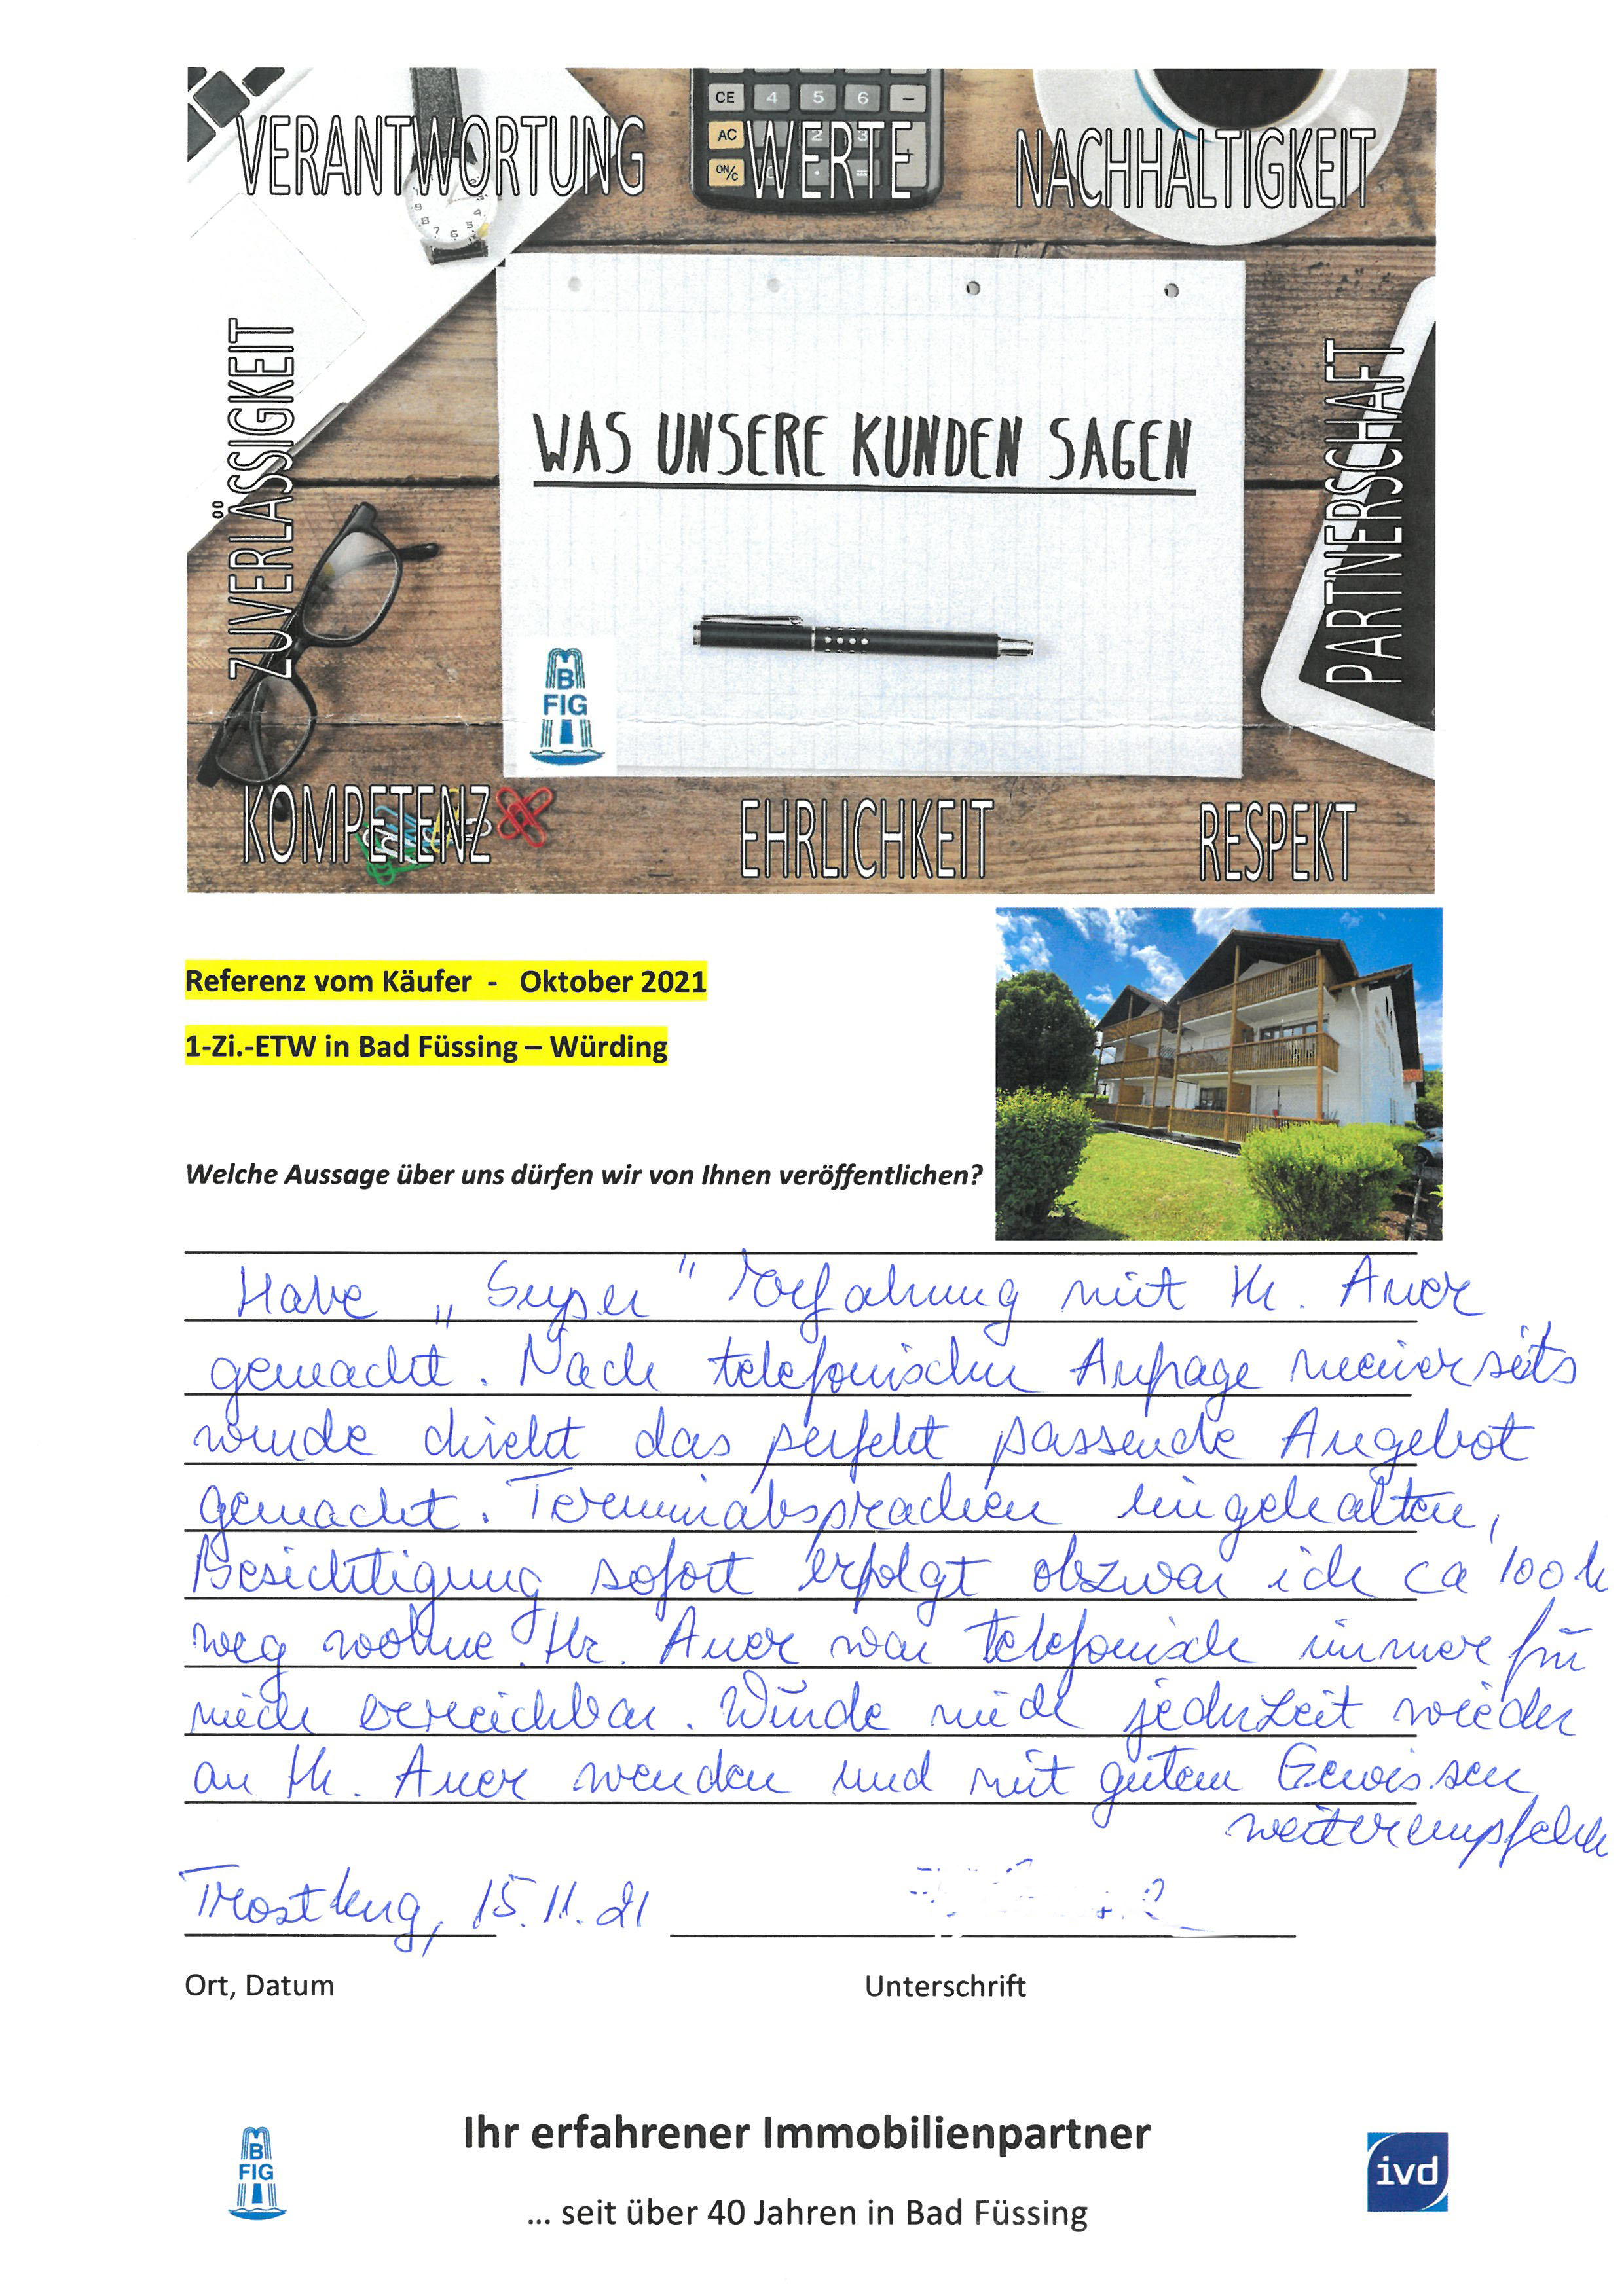 CE 4 5 6 –
AC 2 3 +
ON/C · =
VERANTWORTUNG WERTE NACHHALTIGKEIT
ZUVERLÄSSIGKEIT
WAS UNSERE KUNDEN SAGEN
PARTNERSCHAFT
B
FIG
KOMPETENZ EHRLICHKEIT RESPEKT
Referenz vom Käufer - Oktober 2021
1-Zi.-ETW in Bad Füssing – Würding
Welche Aussage über uns dürfen wir von Ihnen veröffentlichen?
Habe „Super" Erfahrung mit Hr. Auer
gemacht. Nach telefonischer Anfrage meinerseits
wurde direkt das perfekt passende Angebot
gemacht. Terminabsprachen eingehalten,
Besichtigung sofort erfolgt obzwar ich ca 100 k
weg wohne. Hr. Auer war telefonisch immer für
mich erreichbar. Würde mich jederzeit wieder
an Hr. Auer wenden und mit gutem Gewissen
weiterempfehlen
Trostberg, 15.11.21
Ort, Datum Unterschrift
B
FIG
Ihr erfahrener Immobilienpartner
ivd
... seit über 40 Jahren in Bad Füssing